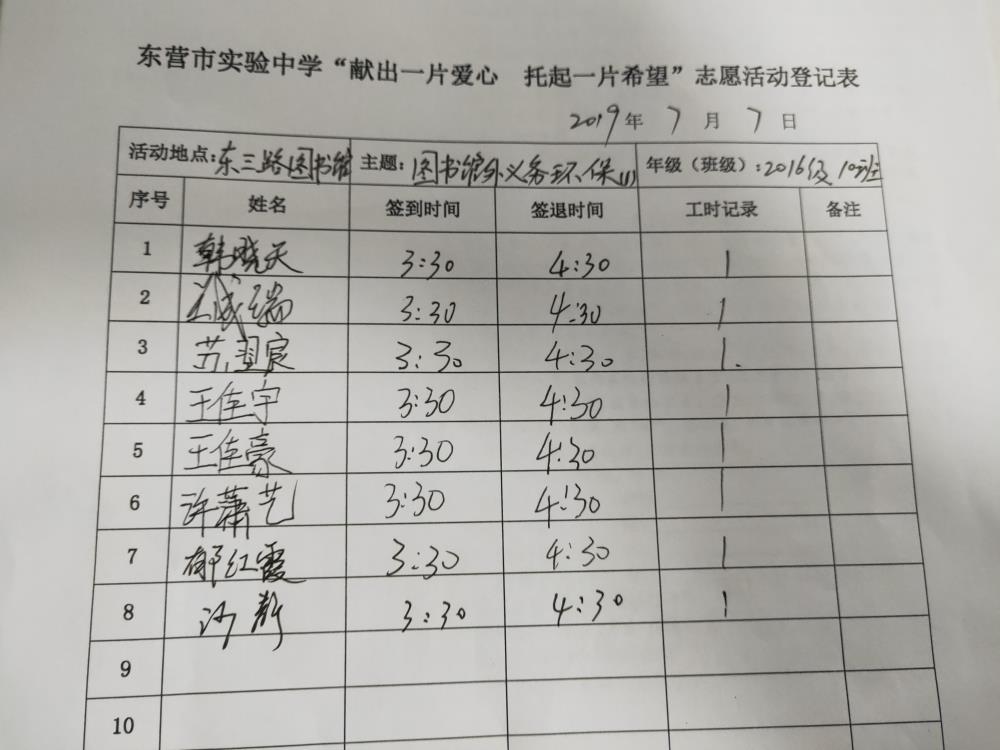 东营市实验中学“献出一片爱心 托起一片希望”志愿活动登记表
2019年 7 月 7 日
活动地点:东三路图书馆 主题:图书馆外义务环保(1) 年级(班级):2016级10班
序号 姓名 签到时间 签退时间 工时记录 备注
1 韩晓天 3:30 4:30 1
2 瑞 3:30 4:30 1
3 苏 宸 3:30 4:30 1.
4 王佳宇 3:30 4:30 1
5 王佳豪 3:30 4:30 1
6 许萧艺 3:30 4:30 1
7 红霞 3:30 4:30 1
8 静 3:30 4:30 1
9
10